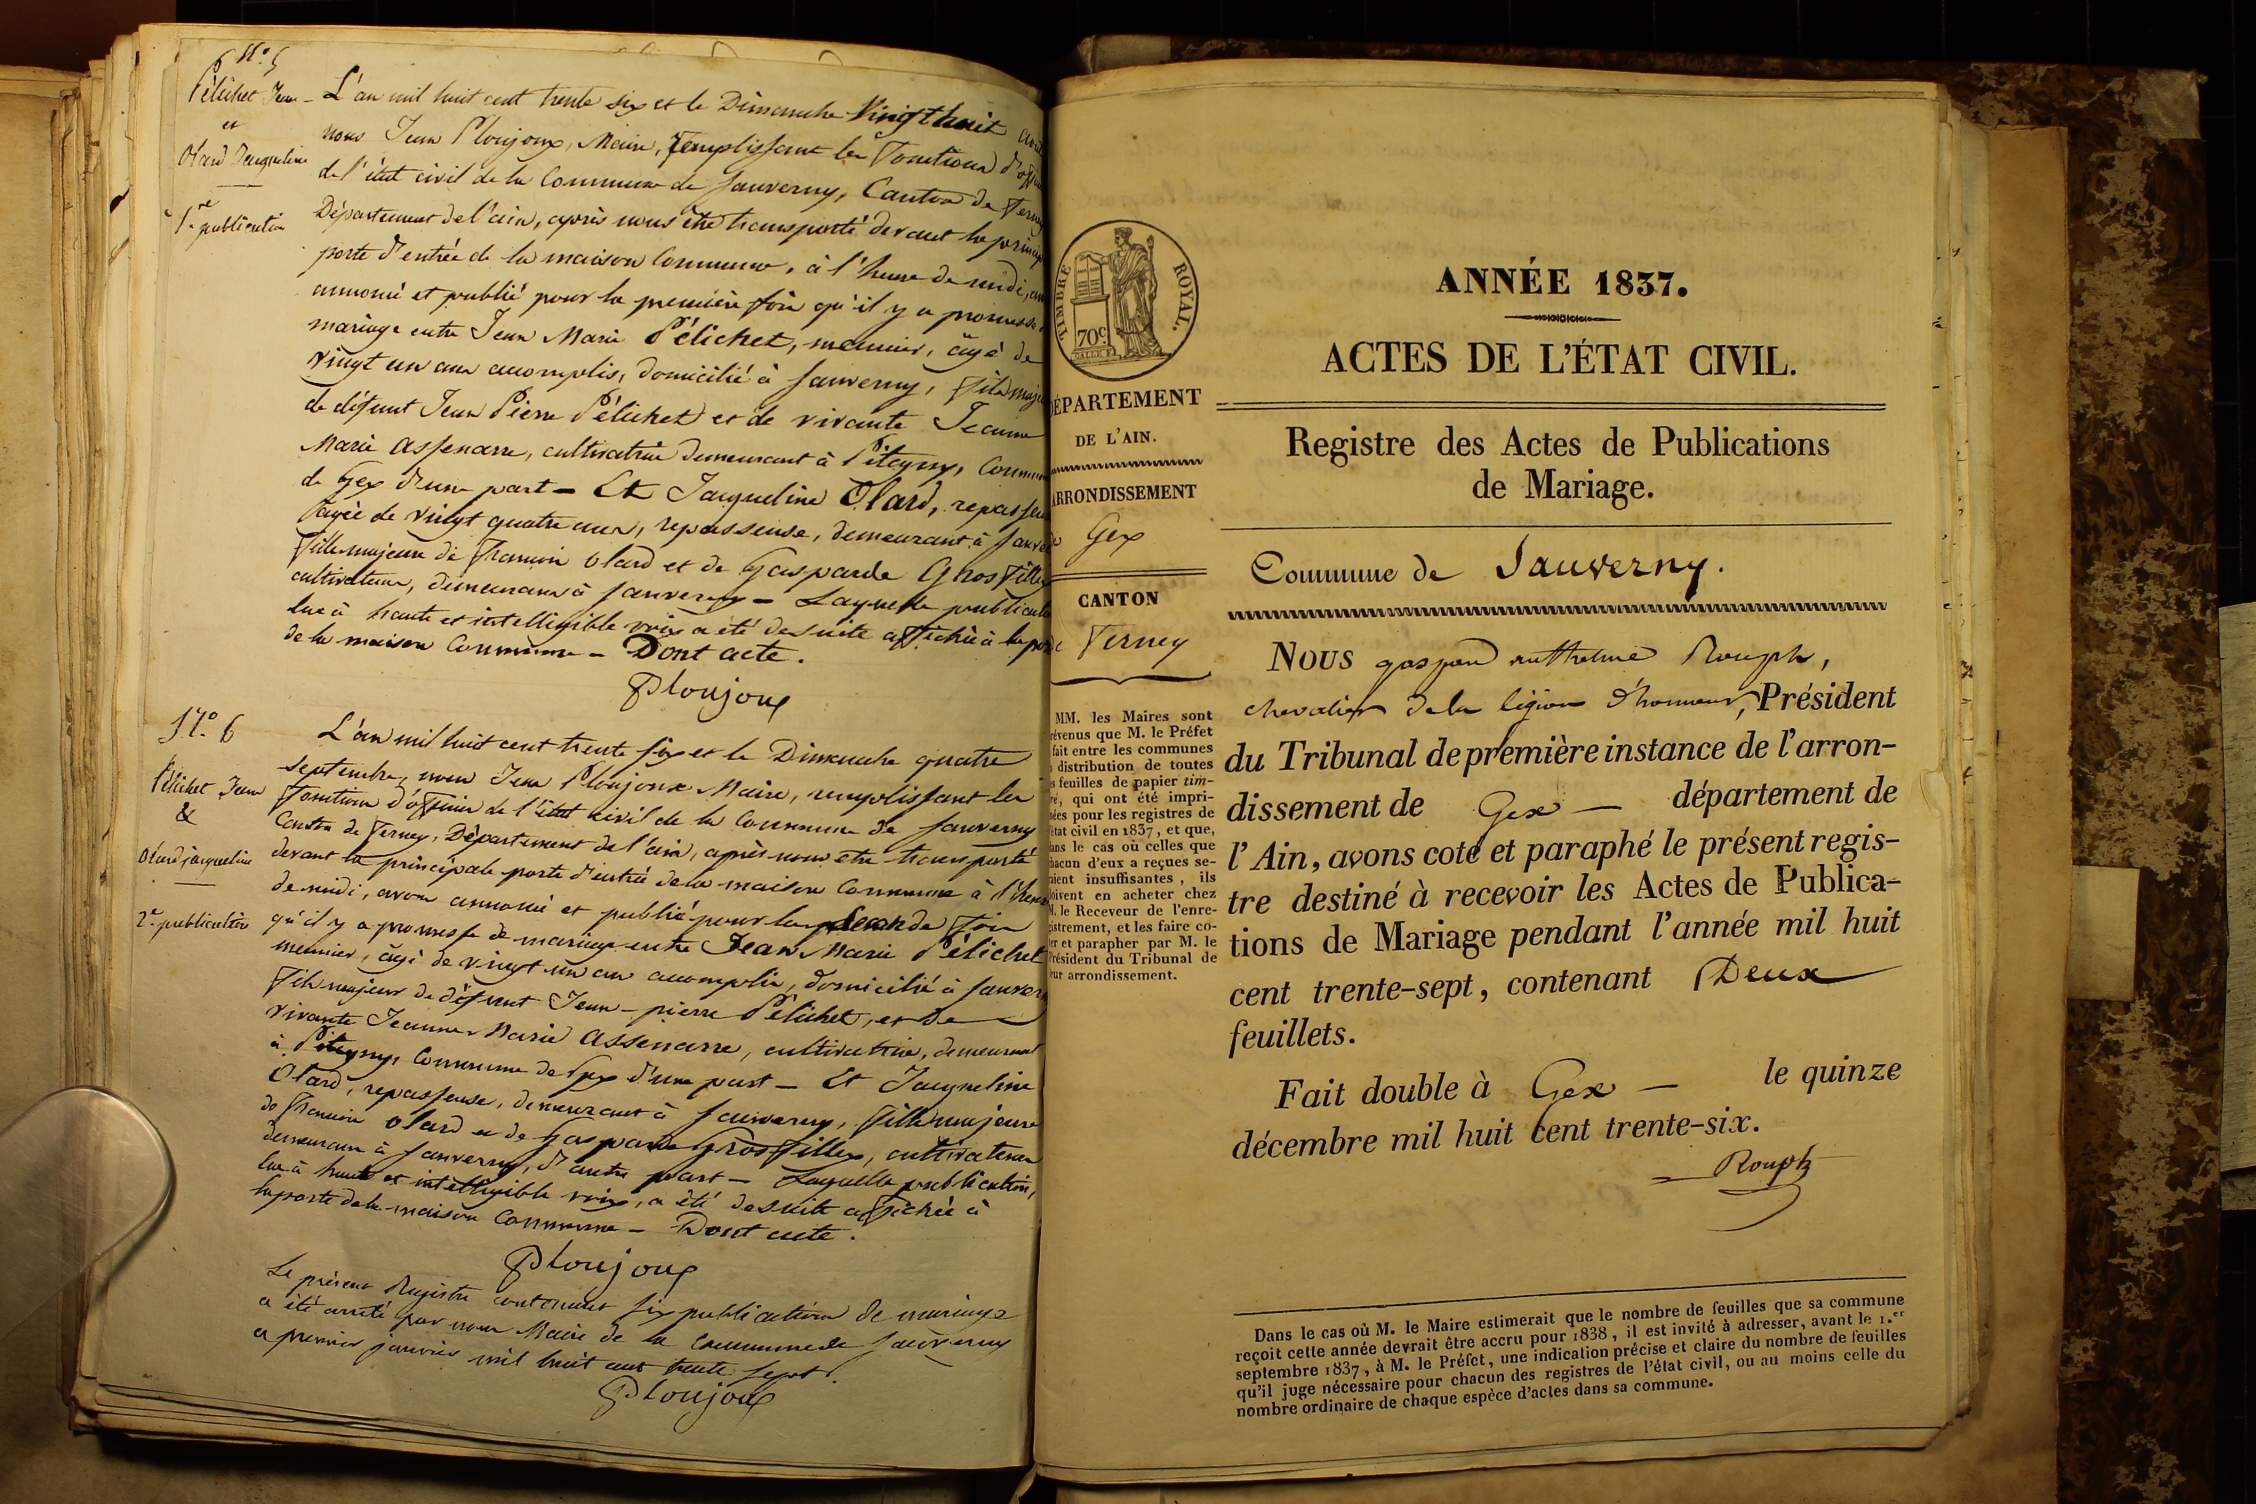 N.° 5
Pélichet Jean
et
Olard Jacqueline
1.re publication
L'an mil huit cent trente six et le Dimanche Vingt huit août
nous Jean Ploujoux, Maire, remplissant les fonctions d'off
de l'état civil de la Commune de Sauverny, Canton de Ferney
Département de l'ain, après nous être transporté devant la princip
porte d'entrée de la maison Commune, à l'heure de midi, av
annoncé et publié pour la première fois qu'il y a promesse
mariage entre Jean Marie Pélichet, meunier, âgé de
vingt un ans accomplis, domicilié à Sauverny, fils maj
de défunt Jean Pierre Pélichet et de vivante Jeanne
Marie Assenarre, cultivatrice demeurant à Pitegny, Commun
de Gex d'une part – Et Jacqueline Olard, repasseu
âgée de vingt quatre ans, repasseuse, demeurant à Sauve
fille majeure de François Olard et de Gasparde Grosfilley
cultivateurs, demeurans à Sauverny – Laquelle publicat
lue à haute et intelligible voix a été de suite affichée à la por
de la maison Commune – Dont acte.
Ploujoux
N.° 6
Pélichet Jean
&
Olard jacqueline
2.e publication
L'an mil huit cent trente six et le Dimanche quatre
septembre, nous Jean Ploujoux Maire, remplissant les
fonctions d'officier de l'état civil de la Commune de Sauverny
Canton de Ferney, Département de l'ain, après nous être transporté
devant la principale porte d'entrée de la maison Commune à l'heure
de midi, avons annoncé et publié pour la seconde fois
qu'il y a promesse de mariage entre Jean Marie Pélichet
meunier, âgé de vingt un ans accomplis, domicilié à Sauver
fils majeur de défunt Jean-pierre Pélichet, et de
vivante Jeanne Marie Assenarre, cultivatrice, demeurant
à Pitegny, Commune de Gex d'une part – Et Jacqueline
Olard, repasseuse, demeurant à Sauverny, fille majeure
de François Olard et de Gasparde Grosfilley, cultivateurs
demeurans à Sauverny, d'autre part – Laquelle publication,
lue à haute et intelligible voix, a été de suite affichée à
la porte de la maison Commune – Dont acte.
Ploujoux
Le présent Registre contenant six publications de mariage
a été arrêté par nous Maire de la commune de Sauverny
ce premier janvier mil huit cent trente sept.
Ploujoux
TIMBRE ROYAL.
70c.
ÉPARTEMENT
DE L'AIN.
RRONDISSEMENT
Gex
CANTON
Ferney
MM. les Maires sont
révenus que M. le Préfet
fait entre les communes
distribution de toutes
s feuilles de papier tim-
ré, qui ont été impri-
ées pour les registres de
état civil en 1837, et que,
ans le cas où celles que
hacun d'eux a reçues se-
aient insuffisantes, ils
oivent en acheter chez
M. le Receveur de l'enre-
istrement, et les faire co-
er et parapher par M. le
Président du Tribunal de
eur arrondissement.
ANNÉE 1837.
ACTES DE L'ÉTAT CIVIL.
Registre des Actes de Publications
de Mariage.
Commune de Sauverny.
NOUS gaspard anthelme Rouph,
chevalier de la légion d'honneur, Président
du Tribunal de première instance de l'arron-
dissement de Gex – département de
l'Ain, avons coté et paraphé le présent regis-
tre destiné à recevoir les Actes de Publica-
tions de Mariage pendant l'année mil huit
cent trente-sept, contenant Deux
feuillets.
Fait double à Gex – le quinze
décembre mil huit cent trente-six.
Rouph
Dans le cas où M. le Maire estimerait que le nombre de feuilles que sa commune
reçoit cette année devrait être accru pour 1838, il est invité à adresser, avant le 1.er
septembre 1837, à M. le Préfet, une indication précise et claire du nombre de feuilles
qu'il juge nécessaire pour chacun des registres de l'état civil, ou au moins celle du
nombre ordinaire de chaque espèce d'actes dans sa commune.